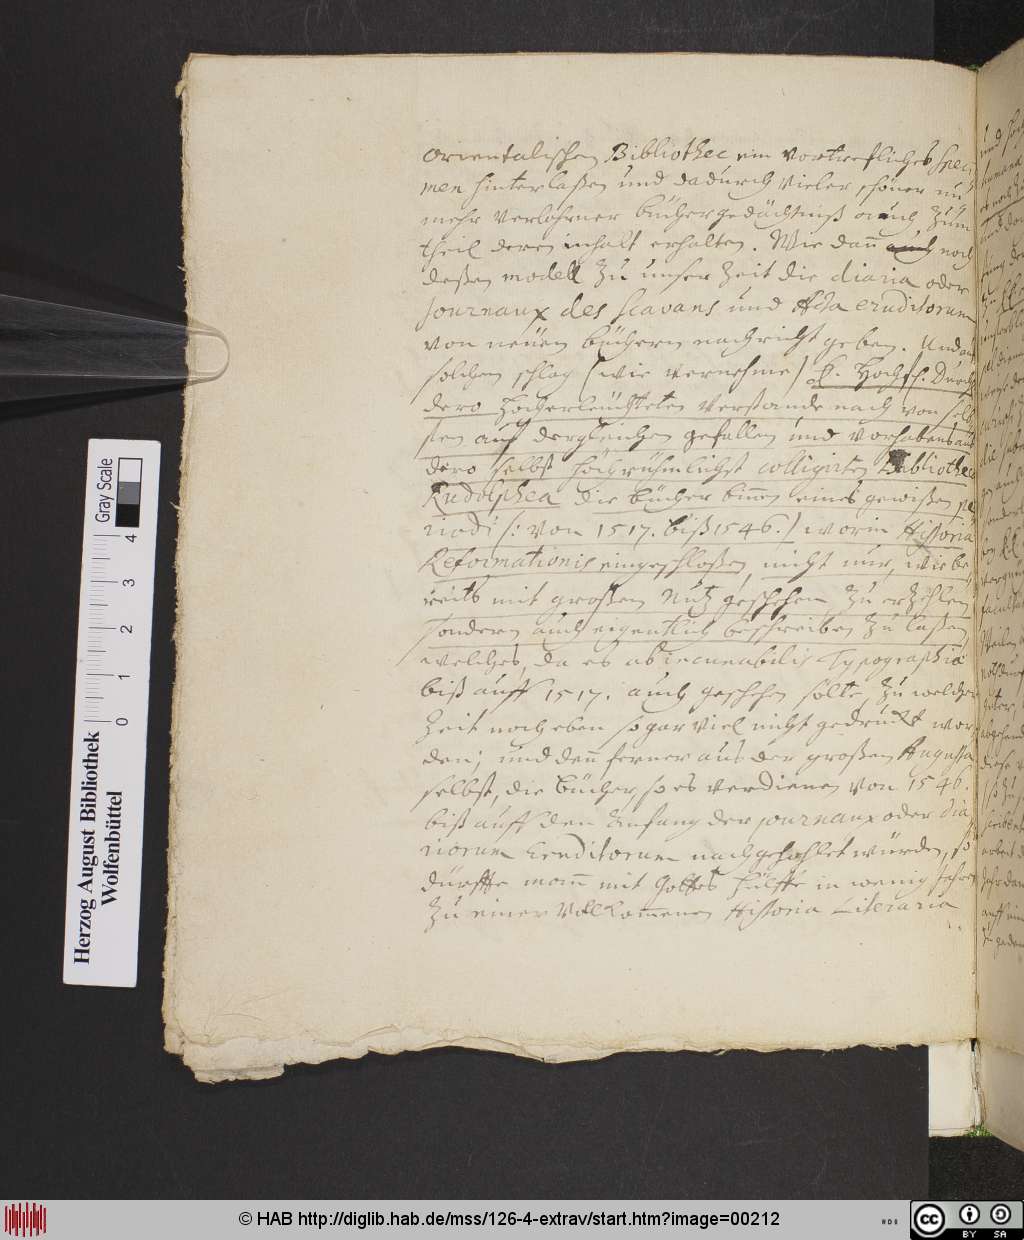 orientalischen Bibliothec ein vortrefliches speci
men hinterlaßen und dadurch vieler schöner nu
mehr verlohrner bücher gedächtniß auch zum
theil deren inhalt erhalten. Wie dann auch noch
deßen modell zu unser Zeit die diaria oder
Journaux des scavans und Acta eruditorum
von neüen büchern nachricht geben. Und auf
solchen schlag (wie vernehme) E. Hochf. Durchl.
dero Hocherleüchteten verstande nach von selb
sten auf dergleichen gefallen und vorhabens aus
dero selbst hochrühmlichst colligirten Bibliothec
Rudolphea die bücher binnen eines gewißen pe
riodi (: von 1517. biß 1546.) worin Historia
Reformationis eingeschloßen, nicht nur, wie be
reits mit großem Nutz geschehen, zu erzehlen
sondern auch eigentlich beschreiben zu laßen,
welches, da es ab incunabilis Typographiæ
biß auff 1517. auch geschehen solte, zu welcher
Zeit noch eben so gar viel nicht gedruckt wor
den; und denn ferner aus der großen Augusta
selbst, die bücher so es verdienen von 1546.
biß auff den anfang der journaux oder dia
riorum Eruditorum nachgehohlet würden, so
dürffte man mit Gottes hülffe in wenig jahren
zu einer vollkommenen Historia Literaria
Herzog August Bibliothek
Wolfenbüttel
0 1 2 3 4
Gray Scale
© HAB http://diglib.hab.de/mss/126-4-extrav/start.htm?image=00212
cc BY SA